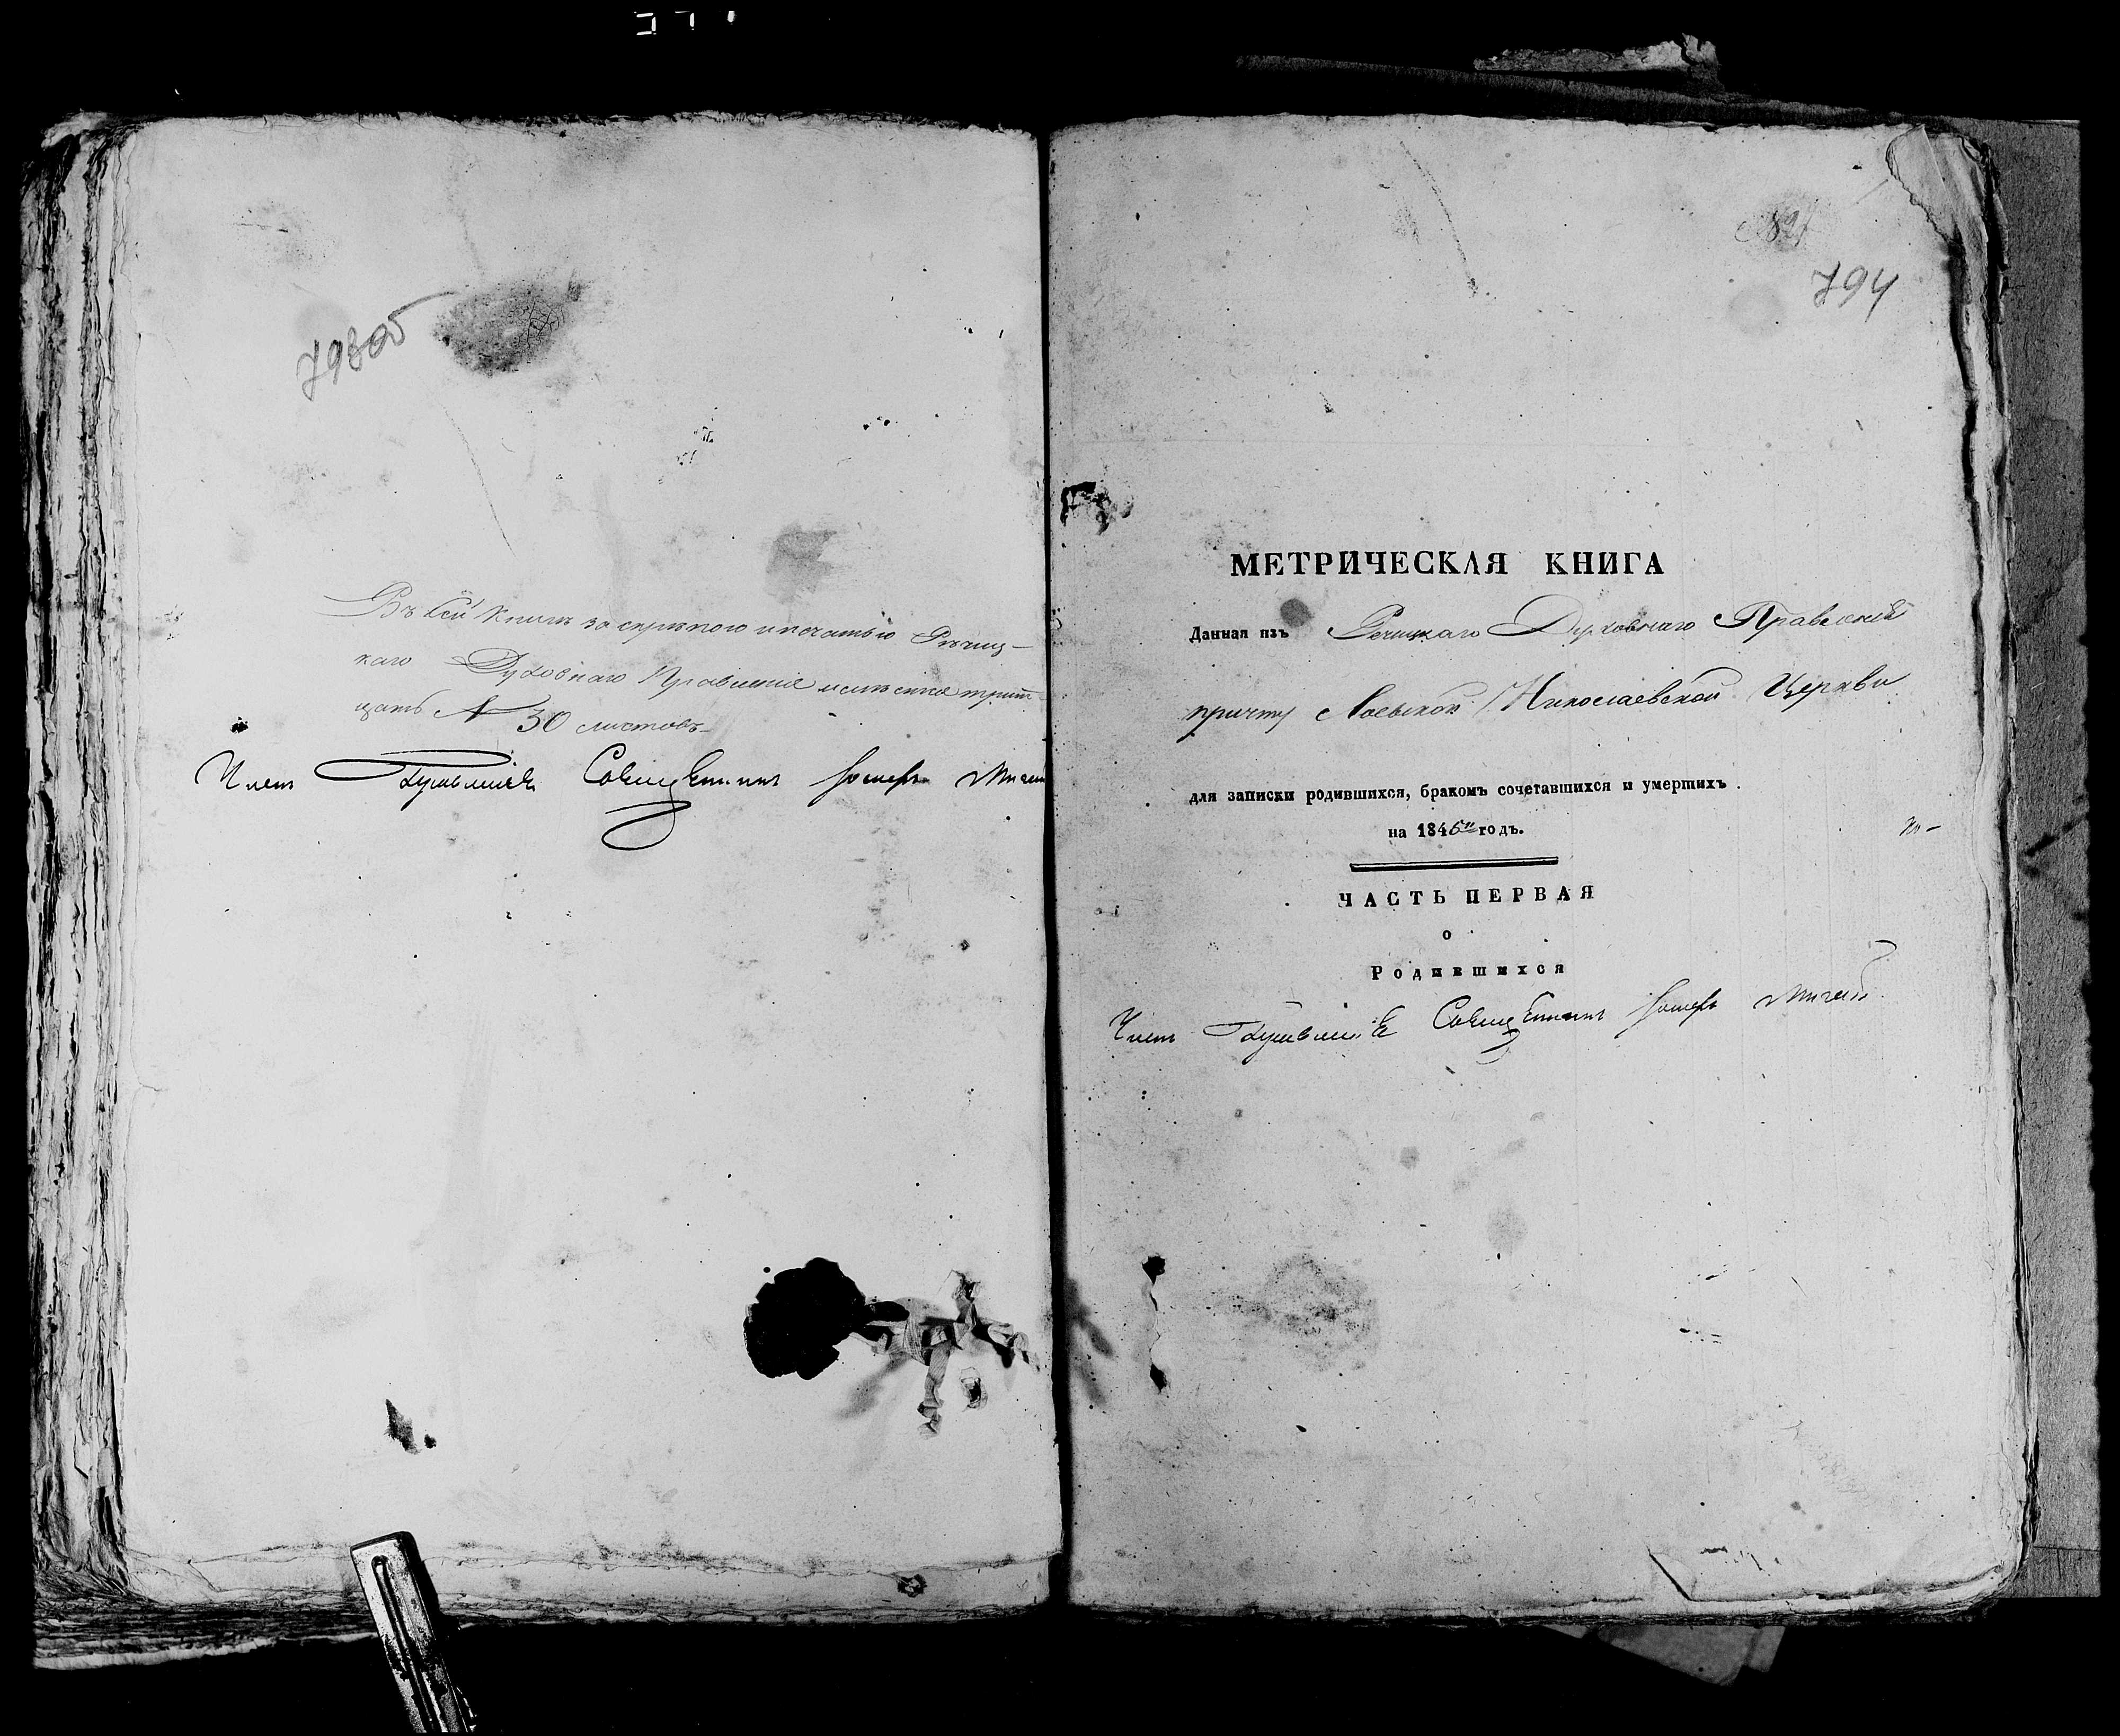 793об
Въ сей книгѣ за скрѣпою и печатью Рѣчиц-
каго Духовнаго Правленія трит-
цать 30 листовъ
Членъ Правленія Священникъ
794
МЕТРИЧЕСКАЯ КНИГА
Данная изъ Речицкаго Духовнаго Правленія
причту Лоевской Николаевской Церкви
для записки родившихся, бракомъ сочетавшихся и умершихъ
на 1845й годъ.
ЧАСТЬ ПЕРВАЯ
о
Родившихся
Членъ Правленія Священникъ